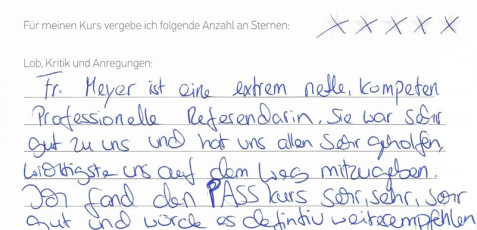 Für meinen Kurs vergebe ich folgende Anzahl an Sternen: X X X X X
Lob, Kritik und Anregungen:
Fr. Meyer ist eine extrem nette, kompeten
Professionelle Referendarin. Sie war sehr
gut zu uns und hat uns allen sehr geholfen,
wichtigste uns auf dem Weg mitzugeben.
Ich fand den PASS Kurs sehr, sehr, sehr
gut und würde es definitiv weiterempfehlen